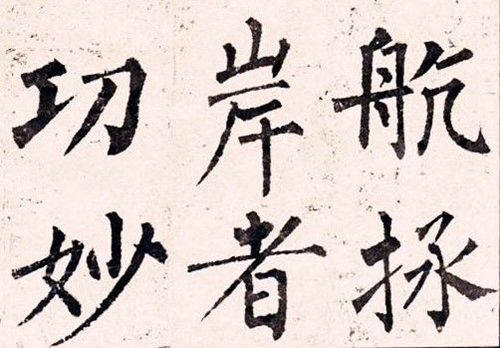 航拯
岸者
功妙